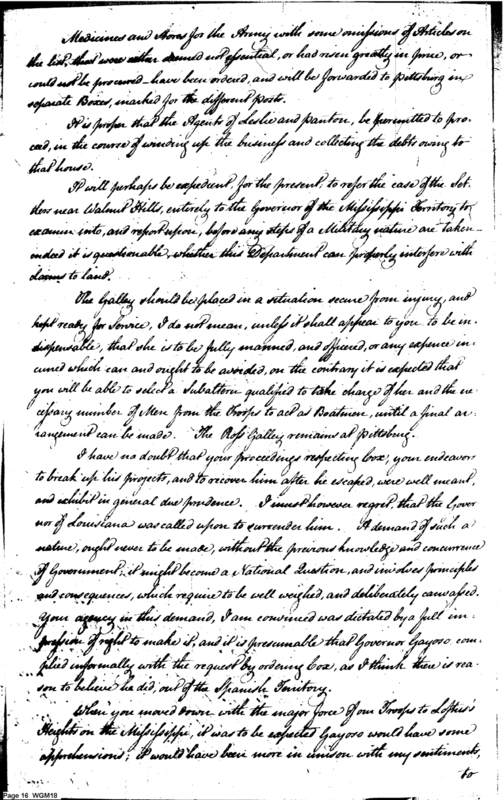 Medicines and Stores for the Army with some omissions of Articles on
the list, that were either deemed not essential, or had risen greatly in price, or
could not be procured - have been ordered, and will be forwarded to Pittsburg in
separate Boxes, marked for the different posts.
It is proper that the Agents of Leslie and Panton, be permitted to pro-
ceed, in the course of winding up the business and collecting the debts owing to
that house.
It will perhaps be expedient, for the present, to refer the case of the Set-
tlers near Walnut Hills, entirely to the Governor of the Mississippi Territory to
examin into, and report upon, before any steps of a Military nature are taken -
indeed it is questionable, whether this Department can properly interfere with
claims to land.
The Galley should be placed in a situation secure from injury, and
kept ready for Service, I do not mean, unless it shall appear to you to be in-
dispensable, that she is to be fully manned, and officered, or any expence in-
curred which can and ought to be avoided, on the contrary it is expected that
you will be able to select a Subaltern qualified to take charge of her and the ne-
cessary number of Men from the Troops to act as Boatmen, until a final ar-
rangement can be made. The Ross Galley remains at Pittsburg.
I have no doubt that your proceedings respecting Cox, your endeavor
to break up his projects, and to recover him after he escaped, were well meant,
and exhibit in general due prudence. I must however regret, that the Gover
nor of Louisiana was called upon to surrender him. A demand of such a
nature, ought never to be made, without the previous knowledge and concurrence
of Government; it might become a National Question, and involves principles
and consequences, which require to be well weighed, and deliberately canvassed.
Your agency in this demand, I am convinced was dictated by a full im-
pression of right to make it, and it is presumable that Governor Gayoso com-
plied informally with the request by ordering Cox, as I think there is rea-
son to believe he did, out of the Spanish Territory.
When you moved down with the major force of our Troops to Loftus's
Heights on the Mississippi, it was to be expected Gayoso would have some
apprehensions; it would have been more in unison with my sentiments,
to
Page 16 WGM18